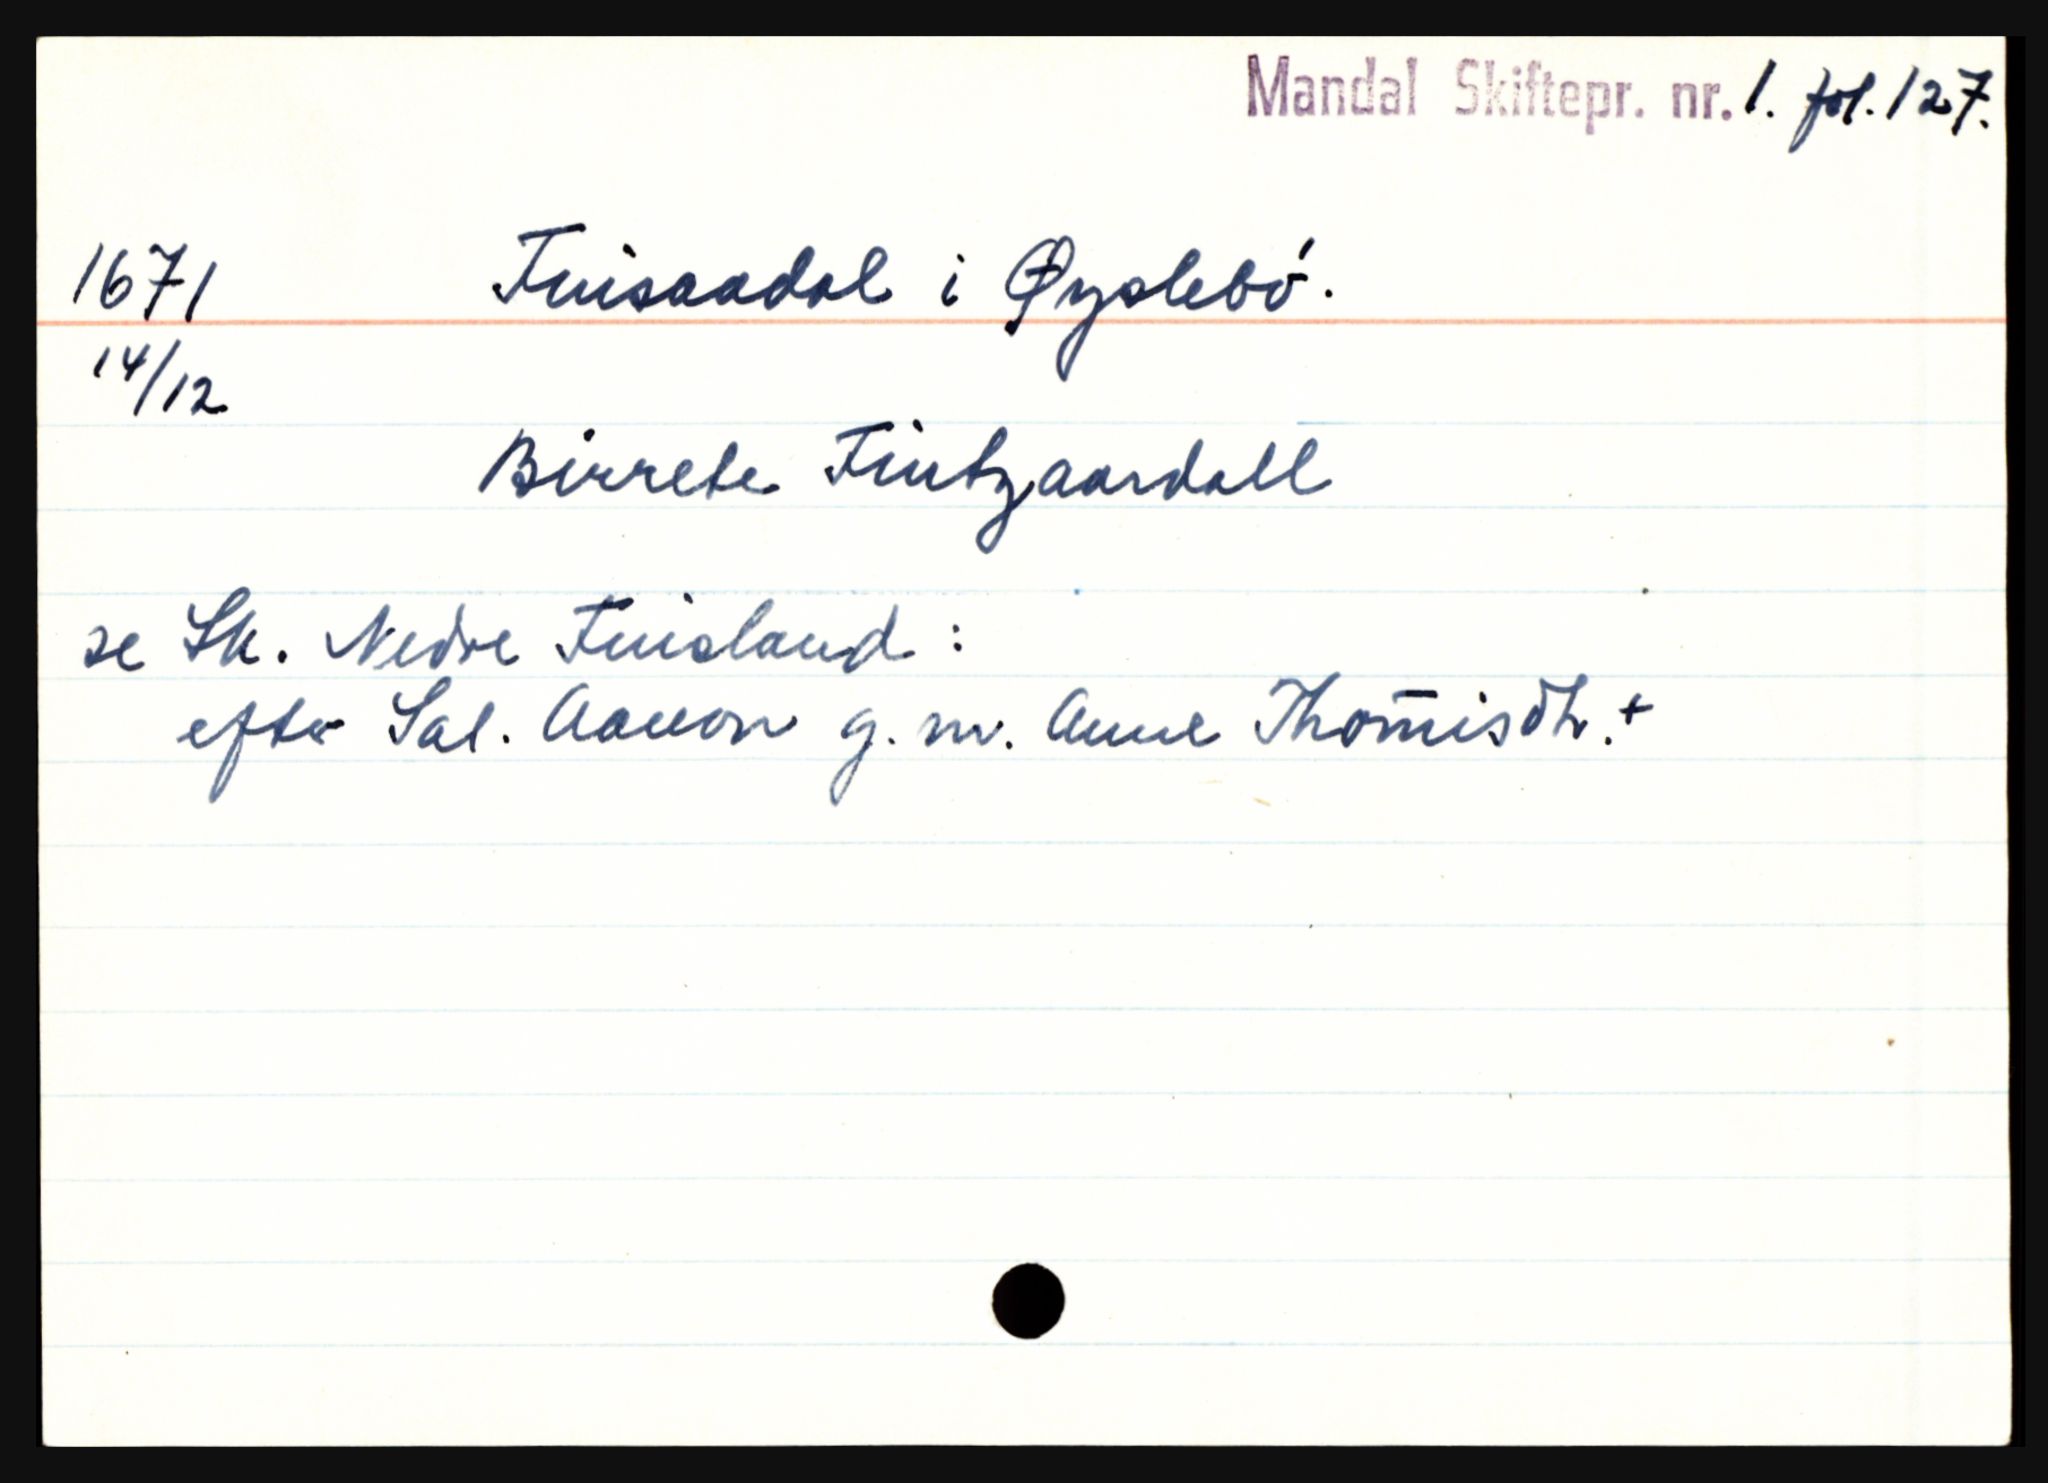 Mandal Skiftepr. nr. 1. fol. 127.
1671 Finsaadal i Øyslebø.
14/12
Birrete Fintzaardall
se Sk. Nedre Finsland:
efter Sal. Aanon g. m. Anne Thom̄isdtr. +